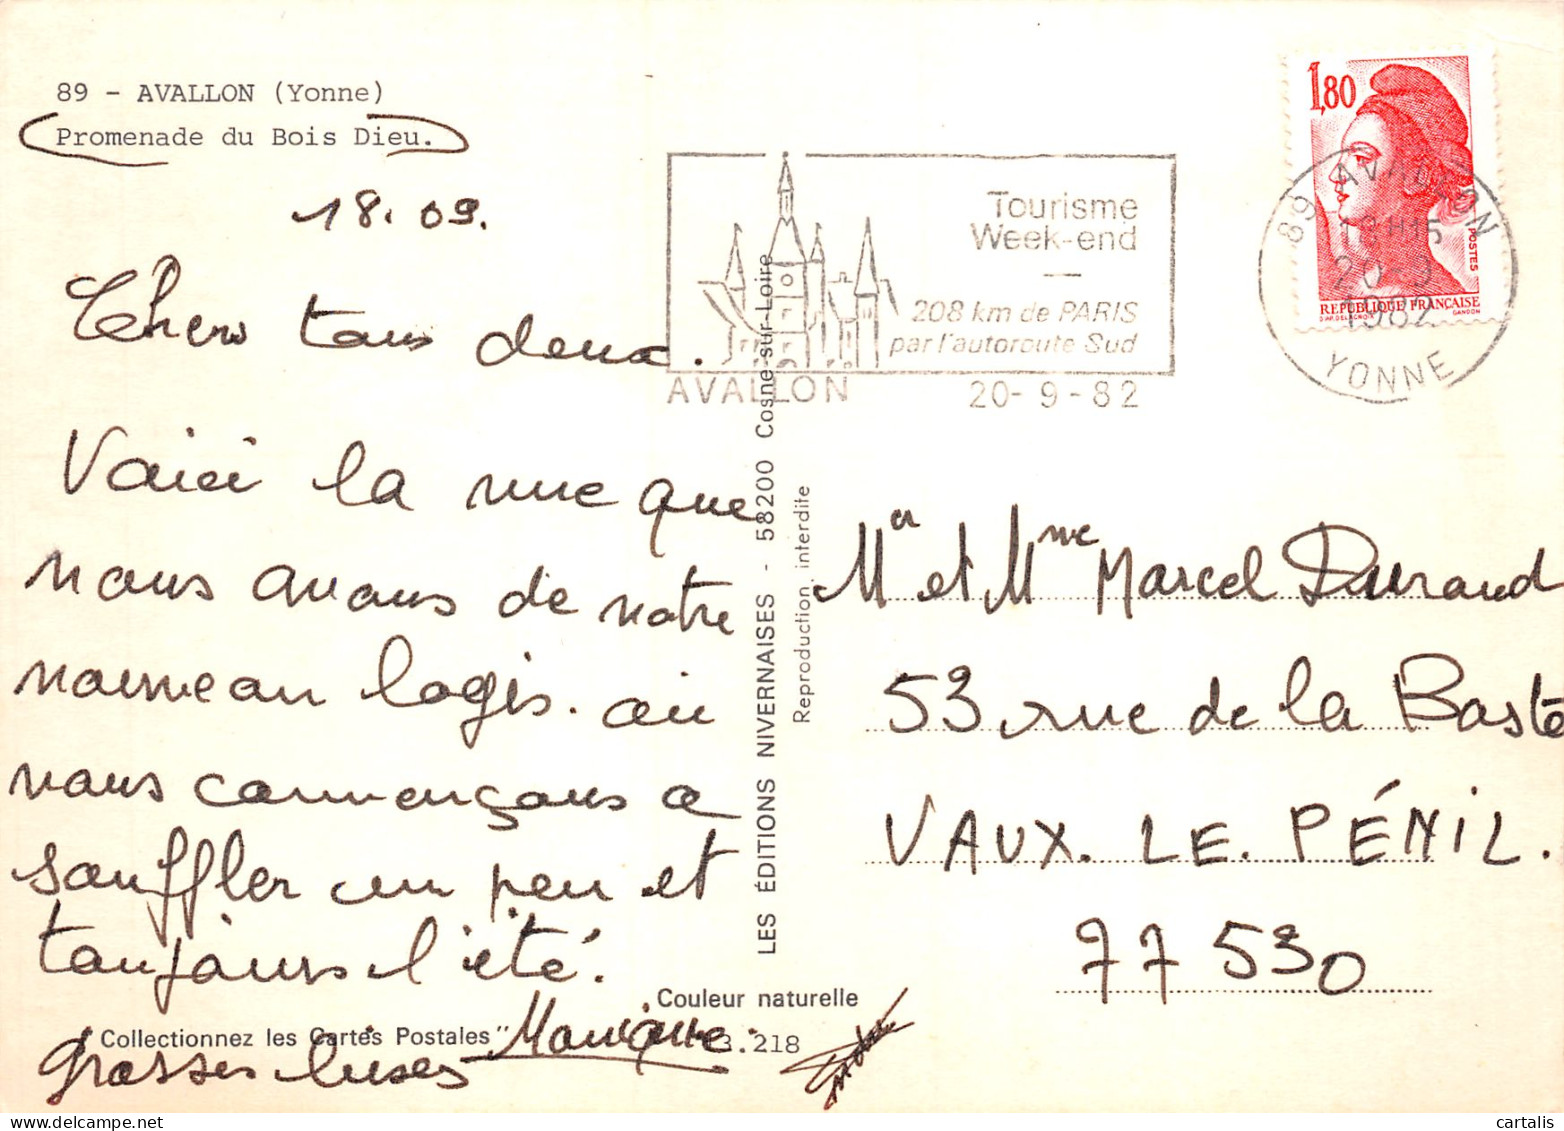 89 - AVALLON (Yonne)
Promenade du Bois Dieu.
18.09.
Chers tous deux.
Voici la vue que
nous avons de notre
nouveau logis. où
nous commençons a
souffler un peu et
toujours l'été.
grosses bises
Monique
"Collectionnez les Cartes Postales"
Couleur naturelle
3.218
LES ÉDITIONS NIVERNAISES - 58200 Cosne-sur-Loire
Reproduction interdite
Tourisme
Week-end
208 km de PARIS
par l'autoroute Sud
AVALLON 20-9-82
1,80
POSTES
REPUBLIQUE FRANÇAISE
D'AP. DELACROIX GANDON
89 AVALLON
18H15
20-9
1982
YONNE
Mr et Mme Marcel Durand
53 rue de la Baste
VAUX. LE. PÉNIL.
77 530
cartalis